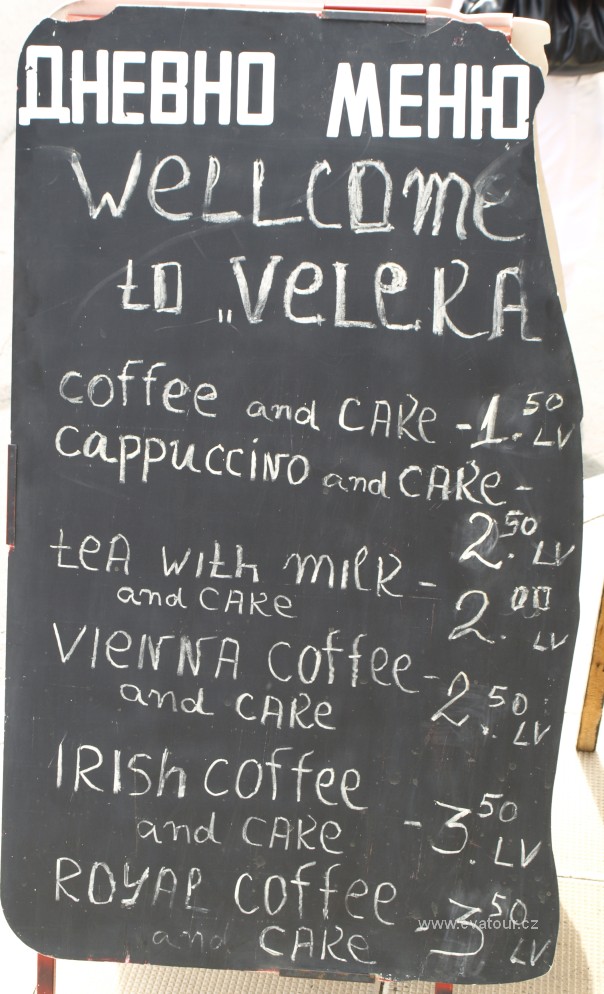 ДНЕВНО МЕНЮ
WeLLCOme
to „VELEKA
coffee and CAKe - 1.50 LV
cappuccino and CAKe -
2.50 LV
teA with milk - 2.00 LV
and CAKe
VIeNNA coffee - 2.50 LV
and CAKe
IRISh coffee
and CAKe - 3.50 LV
ROYAL coffee - 3.50 LV
and CAKe
www.evatour.cz